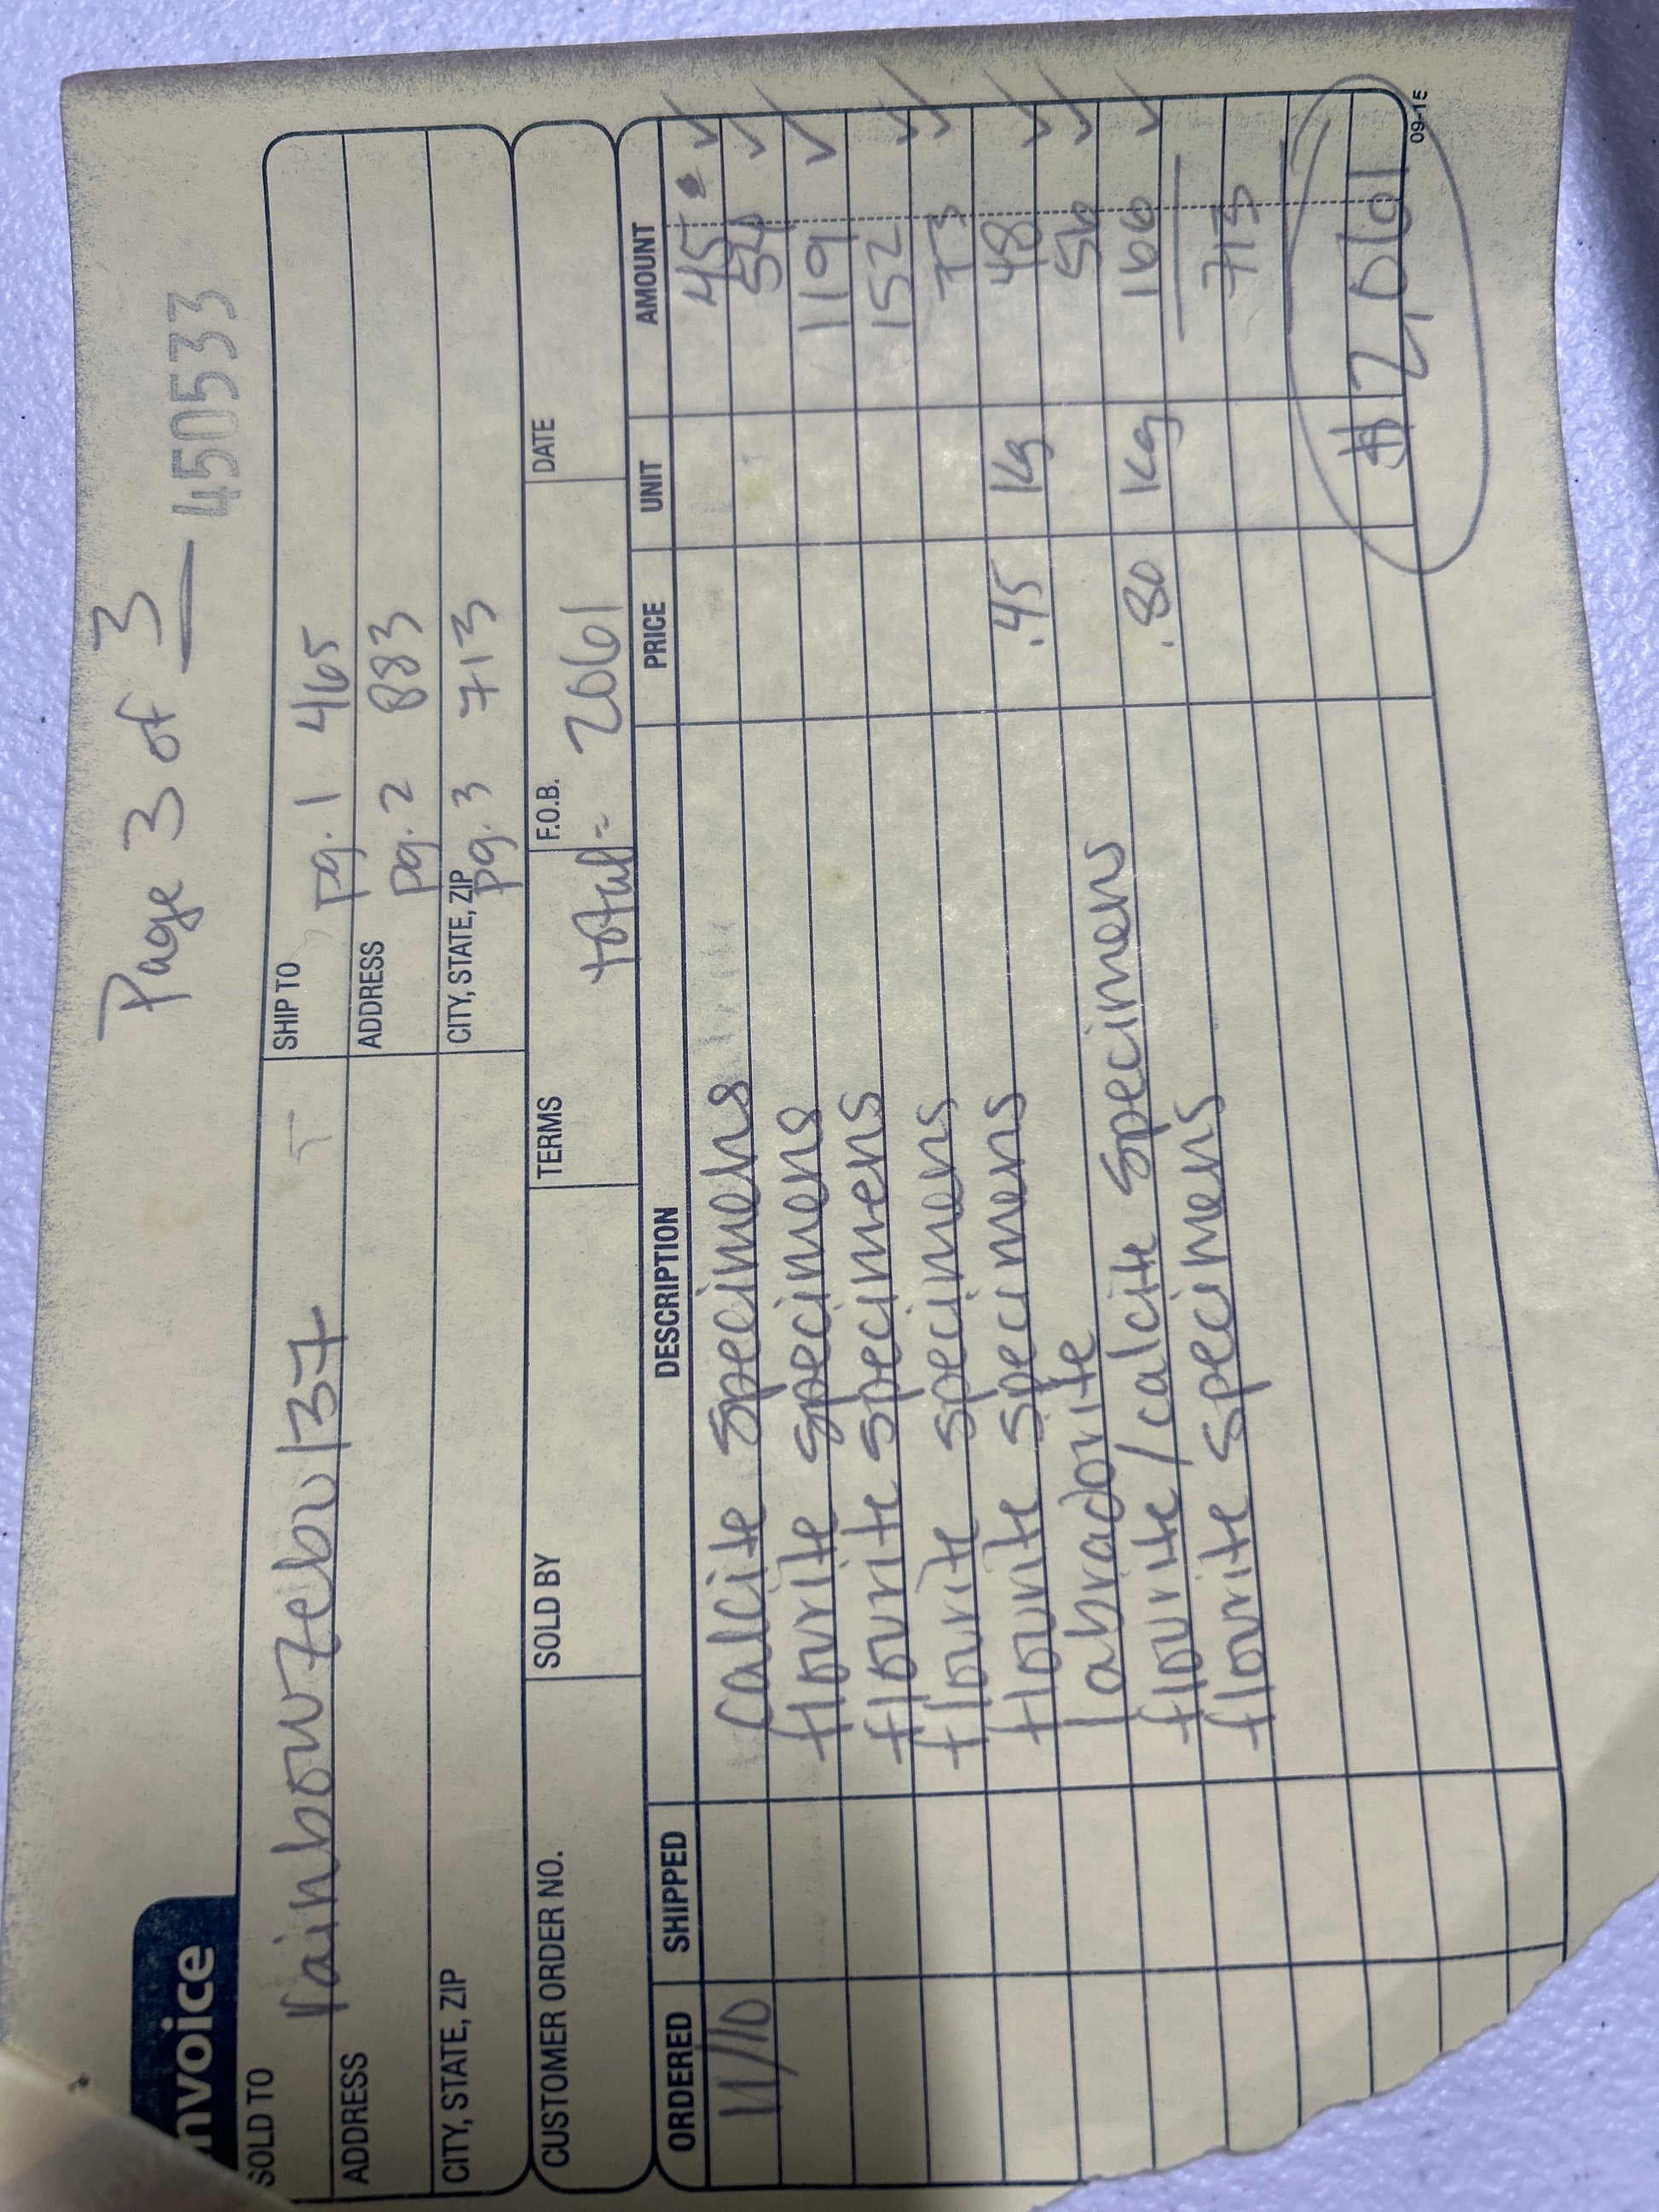 Page 3 of 3
450533
Invoice
SOLD TO rainbowzebu137
SHIP TO pg. 1 465
ADDRESS
ADDRESS pg. 2 883
CITY, STATE, ZIP
CITY, STATE, ZIP pg. 3 713
CUSTOMER ORDER NO. SOLD BY TERMS F.O.B. DATE
total = 2061
ORDERED SHIPPED DESCRIPTION PRICE UNIT AMOUNT
11/10 Calcite Specimens 45
flourite specimens 54
flourite specimens 119
flourite specimens 152
flourite specimens 73
labradorite .45 Kg 48
flourite/calcite Specimens 56
flourite specimens .80 Kg 166
713
$2,061
09-15